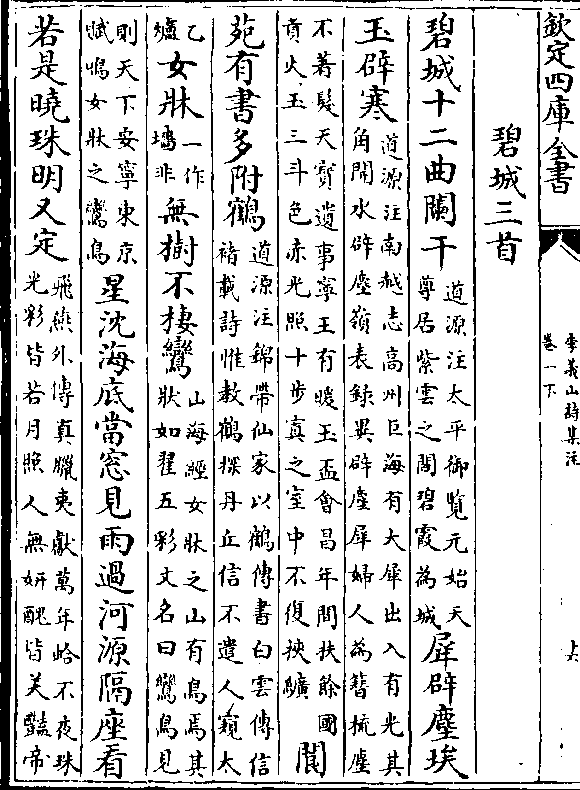 欽定四庫全書
李義山詩集注
卷一下
碧城三首
碧城十二曲闌干
道源注太平御覽元始天
尊居紫雲之閣碧霞為城
犀辟塵埃
玉辟寒
道源注南越志高州巨海有大犀出入有光其
角開水辟塵嶺表錄異辟塵犀婦人為簪梳塵
不著髮天寳遺事寧王有暖玉盃會昌年間扶餘國
貢火玉三斗色赤光照十步寘之室中不復挾纊
閬
苑有書多附鶴
道源注錦帶仙家以鶴傳書白雲傳信
褚載詩惟教鶴探丹丘信不遣人窺太
乙
爐
女牀
一作
墻非
無樹不棲鸞
山海經女牀之山有鳥焉其
狀如翟五彩文名曰鸞鳥見
則天下安寧東京
賦鳴女牀之鸞鳥
星沈海底當窓見雨過河源隔座看
若是曉珠明又定
飛燕外傳真臘夷獻萬年蛤不夜珠
光彩皆若月照人無妍醜皆美豔帝